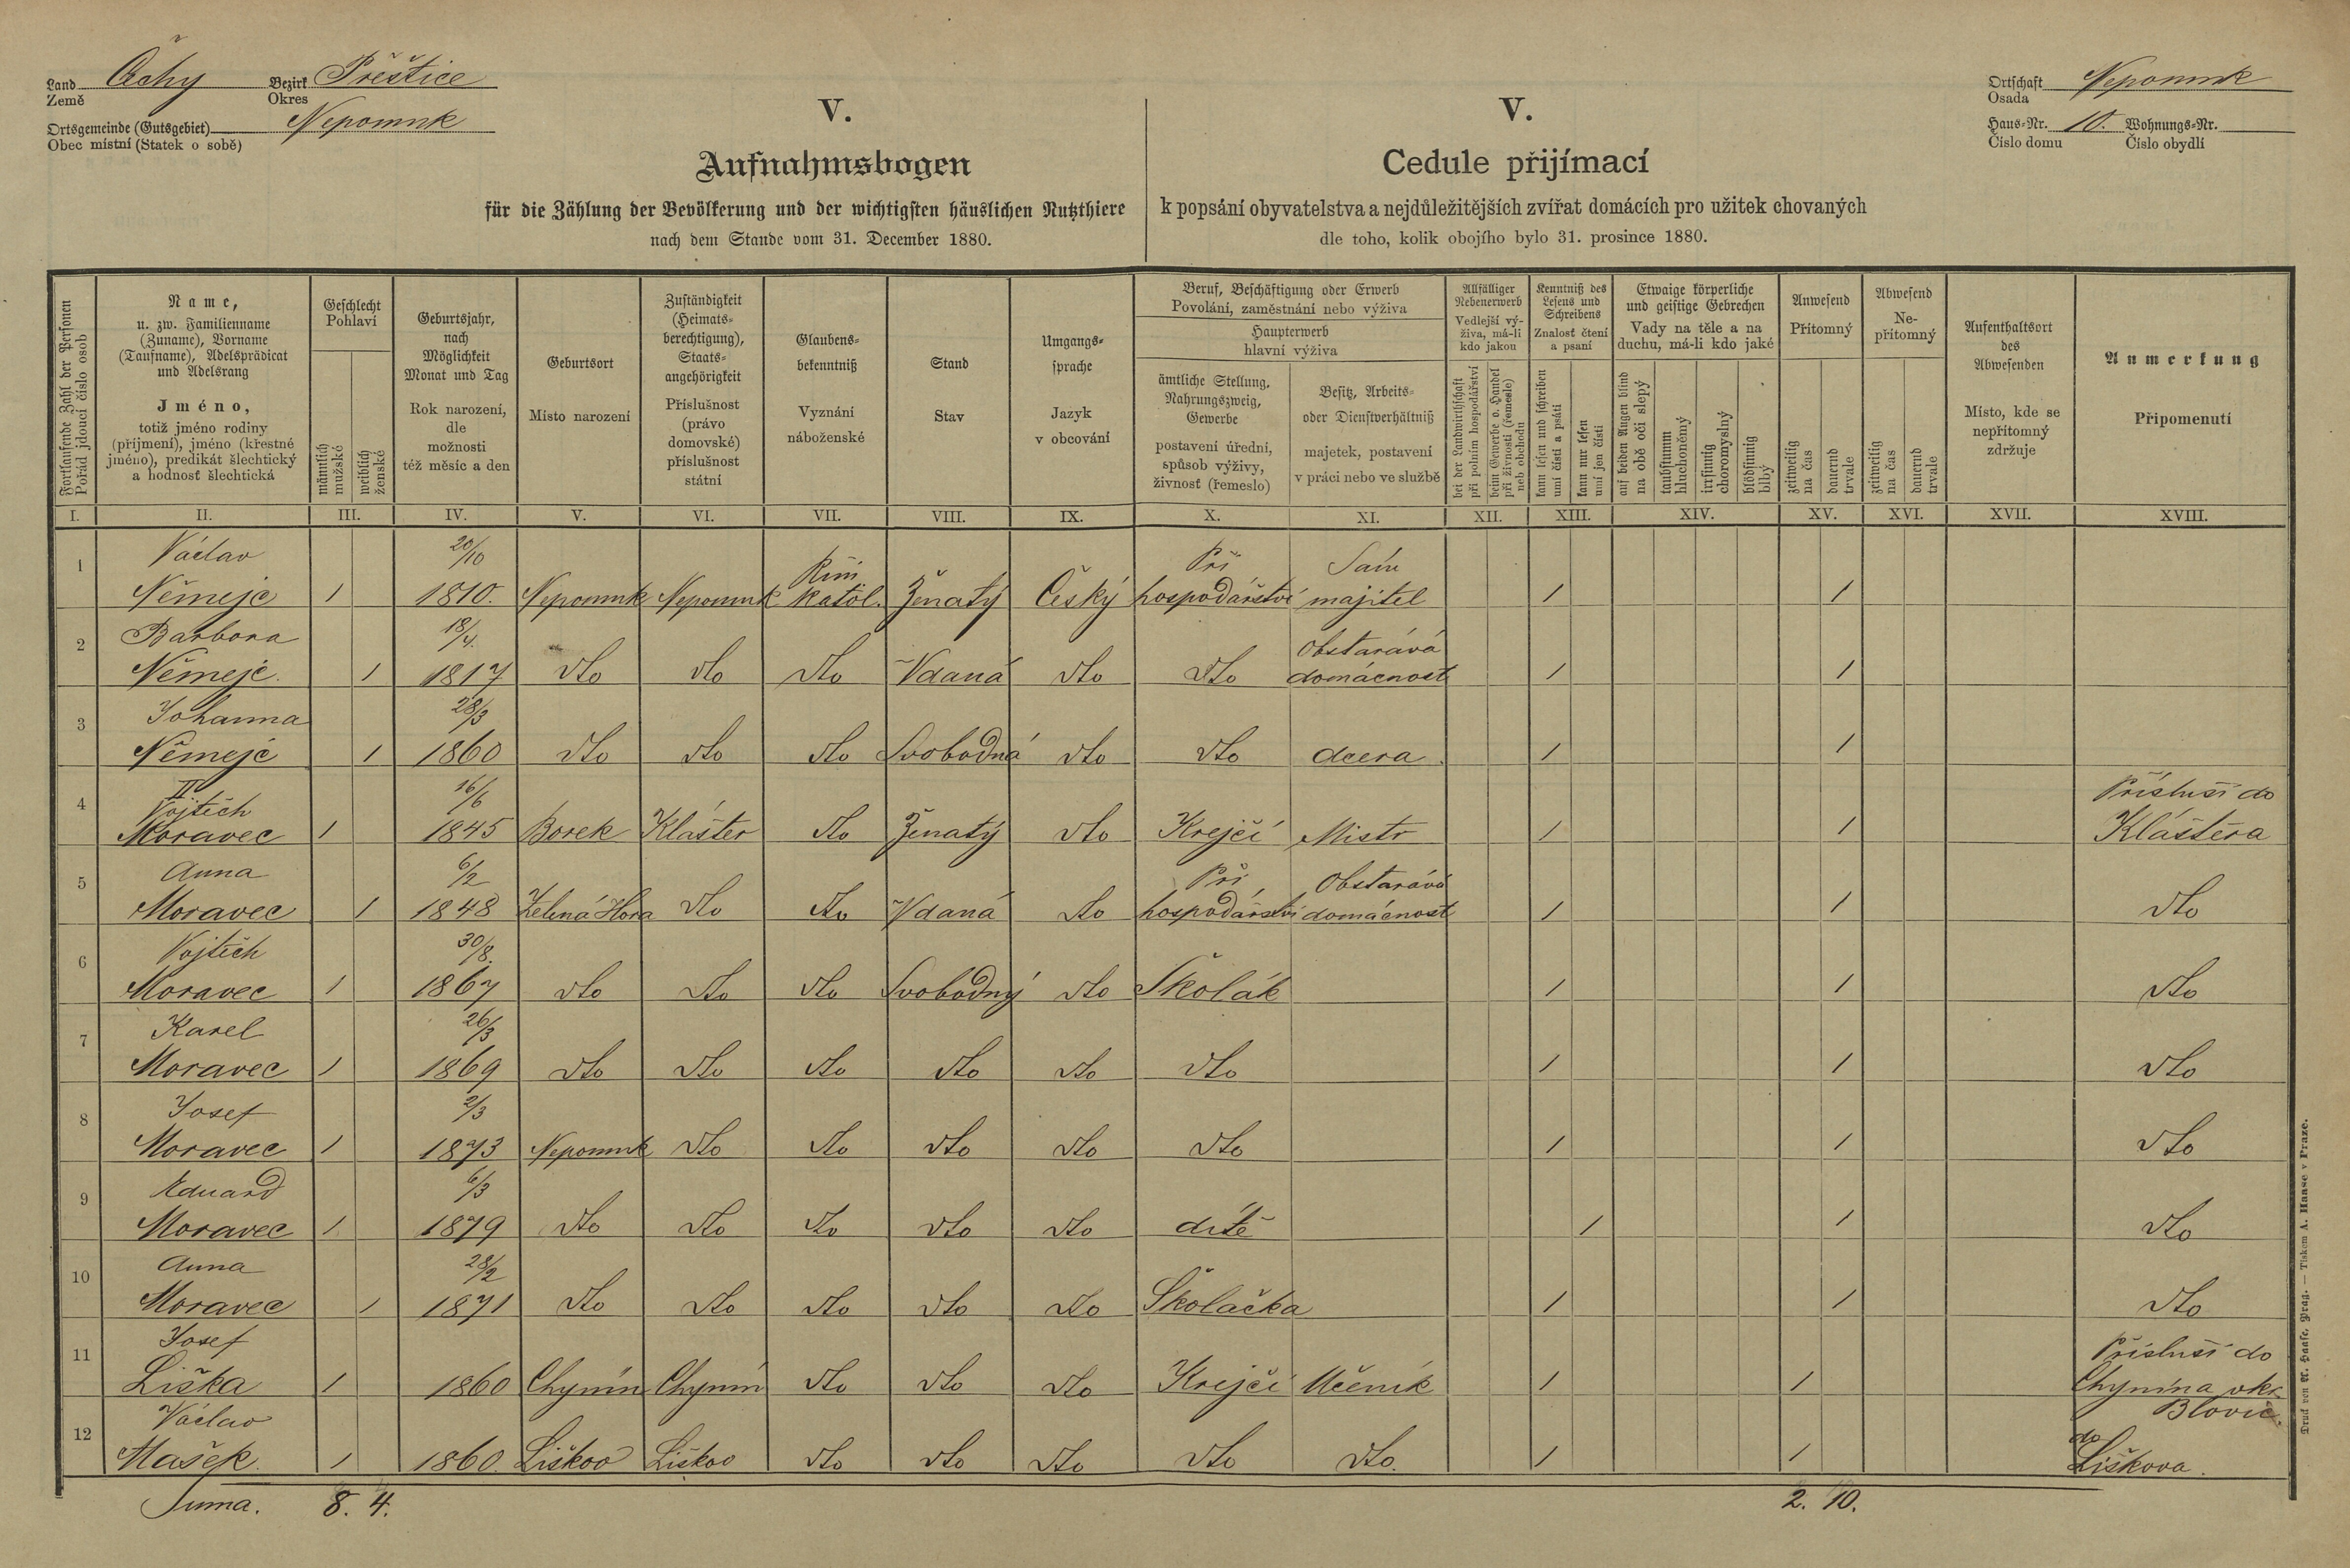 Land Čechy Bezirk Přeštice
Země Okres
Ortsgemeinde (Gutsgebiet) Nepomuk
Obec místní (Statek o sobě)
V.
Aufnahmsbogen
für die Zählung der Bevölkerung und der wichtigsten häuslichen Nutzthiere
nach dem Stande vom 31. December 1880.
V.
Cedule přijímací
k popsání obyvatelstva a nejdůležitějších zvířat domácích pro užitek chovaných
dle toho, kolik obojího bylo 31. prosince 1880.
Ortschaft Nepomuk
Osada
Haus-Nr. 10. Wohnungs-Nr.
Číslo domu Číslo obydlí
Fortlaufende Zahl der Personen
Pořád jdoucí číslo osob
Name,
u. zw. Familienname
(Zuname), Vorname
(Taufname), Adelsprädicat
und Adelsrang
Jméno,
totiž jméno rodiny
(příjmení), jméno (křestné
jméno), predikát šlechtický
a hodnosť šlechtická
Geschlecht
Pohlaví
männlich
mužské
weiblich
ženské
Geburtsjahr,
nach
Möglichkeit
Monat und Tag
Rok narození,
dle
možnosti
též měsíc a den
Geburtsort
Místo narození
Zuständigkeit
(Heimats-
berechtigung),
Staats-
angehörigkeit
Příslušnost
(právo
domovské)
příslušnost
státní
Glaubens-
bekenntniß
Vyznání
náboženské
Stand
Stav
Umgangs-
sprache
Jazyk
v obcování
Beruf, Beschäftigung oder Erwerb
Povolání, zaměstnání nebo výživa
Haupterwerb
hlavní výživa
ämtliche Stellung,
Nahrungszweig,
Gewerbe
postavení úřední,
spůsob výživy,
živnosť (řemeslo)
Besitz, Arbeits-
oder Dienstverhältniß
majetek, postavení
v práci nebo ve službě
Allfälliger
Nebenerwerb
Vedlejší vý-
živa, má-li
kdo jakou
bei der Landwirthschaft
při polním hospodářství
beim Gewerbe o. Handel
při živnosti (řemesle)
neb obchodu
Kenntniß des
Lesens und
Schreibens
Znalosť čtení
a psaní
kann lesen und schreiben
umí čísti a psáti
kann nur lesen
umí jen čísti
Etwaige körperliche
und geistige Gebrechen
Vady na těle a na
duchu, má-li kdo jaké
auf beiden Augen blind
na obě oči slepý
taubstumm
hluchoněmý
irrsinnig
choromyslný
blödsinnig
blbý
Anwesend
Přítomný
zeitweilig
na čas
dauernd
trvale
Abwesend
Ne-
přítomný
zeitweilig
na čas
dauernd
trvale
Aufenthaltsort
des
Abwesenden
Místo, kde se
nepřítomný
zdržuje
Anmerkung
Připomenutí
I. II. III. IV. V. VI. VII. VIII. IX. X. XI. XII. XIII. XIV. XV. XVI. XVII. XVIII.
1 Václav 20/10 Řím Při Sám
Němejc 1 1810. Nepomuk Nepomuk katol. Ženatý Český hospodářství majitel 1 1
2 Barbora 18/4. Obstarává
Němejc. 1 1817 dto dto dto Vdaná dto dto domácnost 1 1
3 Johanna 28/3
Němejc 1 1860 dto dto dto Svobodná dto dto dcera. 1 1
II
4 Vojtěch 16/6 Přísluší do
Moravec 1 1845 Borek Klášter dto Ženatý dto Krejčí Mistr 1 1 Kláštera
5 Anna 6/2 Při Obstarává
Moravec 1 1848 Zelená Hora dto dto Vdaná dto hospodářství domácnost 1 1 dto
6 Vojtěch 30/8.
Moravec 1 1867 dto dto dto Svobodný dto Školák 1 1 dto
7 Karel 26/3
Moravec 1 1869 dto dto dto dto dto dto 1 1 dto
8 Josef 2/3
Moravec 1 1873 Nepomuk dto dto dto dto dto 1 1 dto
9 Eduard 6/3
Moravec 1 1879 dto dto dto dto dto dítě 1 1 dto
10 Anna 28/2
Moravec 1 1871 dto dto dto dto dto Školačka 1 1 dto
11 Josef Přísluší do
Liška 1 1860 Chynín Chynín dto dto dto Krejčí Učeník 1 1 Chynína okr.
Blovic.
12 Václav do
Mašek. 1 1860. Liškov Liškov dto dto dto dto dto. 1 1 Liškova.
Suma. 8. 4. 2. 10.
Druck von A. Haase, Prag. — Tiskem A. Haase v Praze.